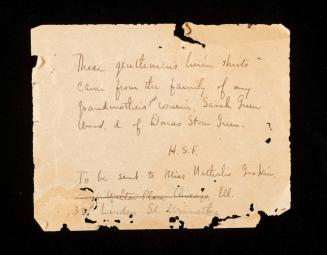 These gentlemen's linen shirts
came from the family of my
grandmother's cousin, Sarah Green
Wood, d. of Dorcas Stow Green.
H.S.F.
To be sent to Miss Nathalie Gookin,
Walton Place, Chicago, Ill.
Linden St. Winnetka